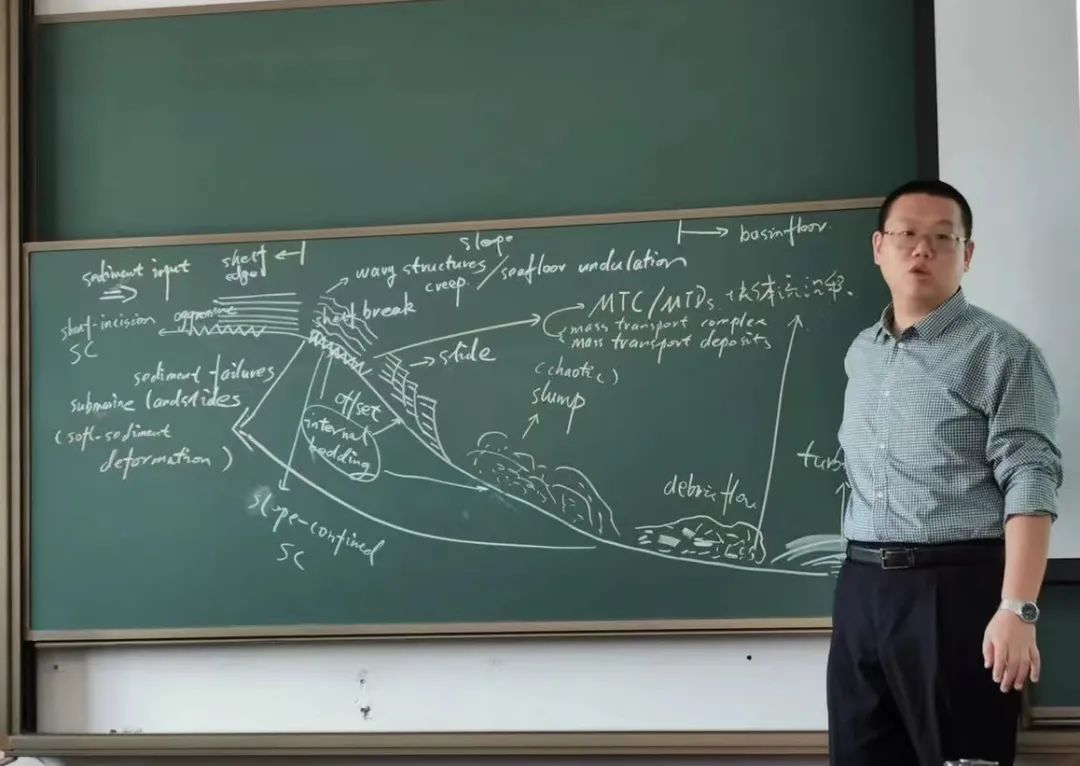 sediment input
shelf
edge
slope
basinfloor
wavy structures / seafloor undulation
creep
shelf break
shelf-incision
SC
aggrading
MTC/MTDs. 块体流沉积.
mass transport complex
mass transport deposits
slide
sediment failures
submarine landslides
(soft-sediment
deformation)
offset
internal
bedding
(chaotic)
slump
slope-confined
SC
debris flow
turb